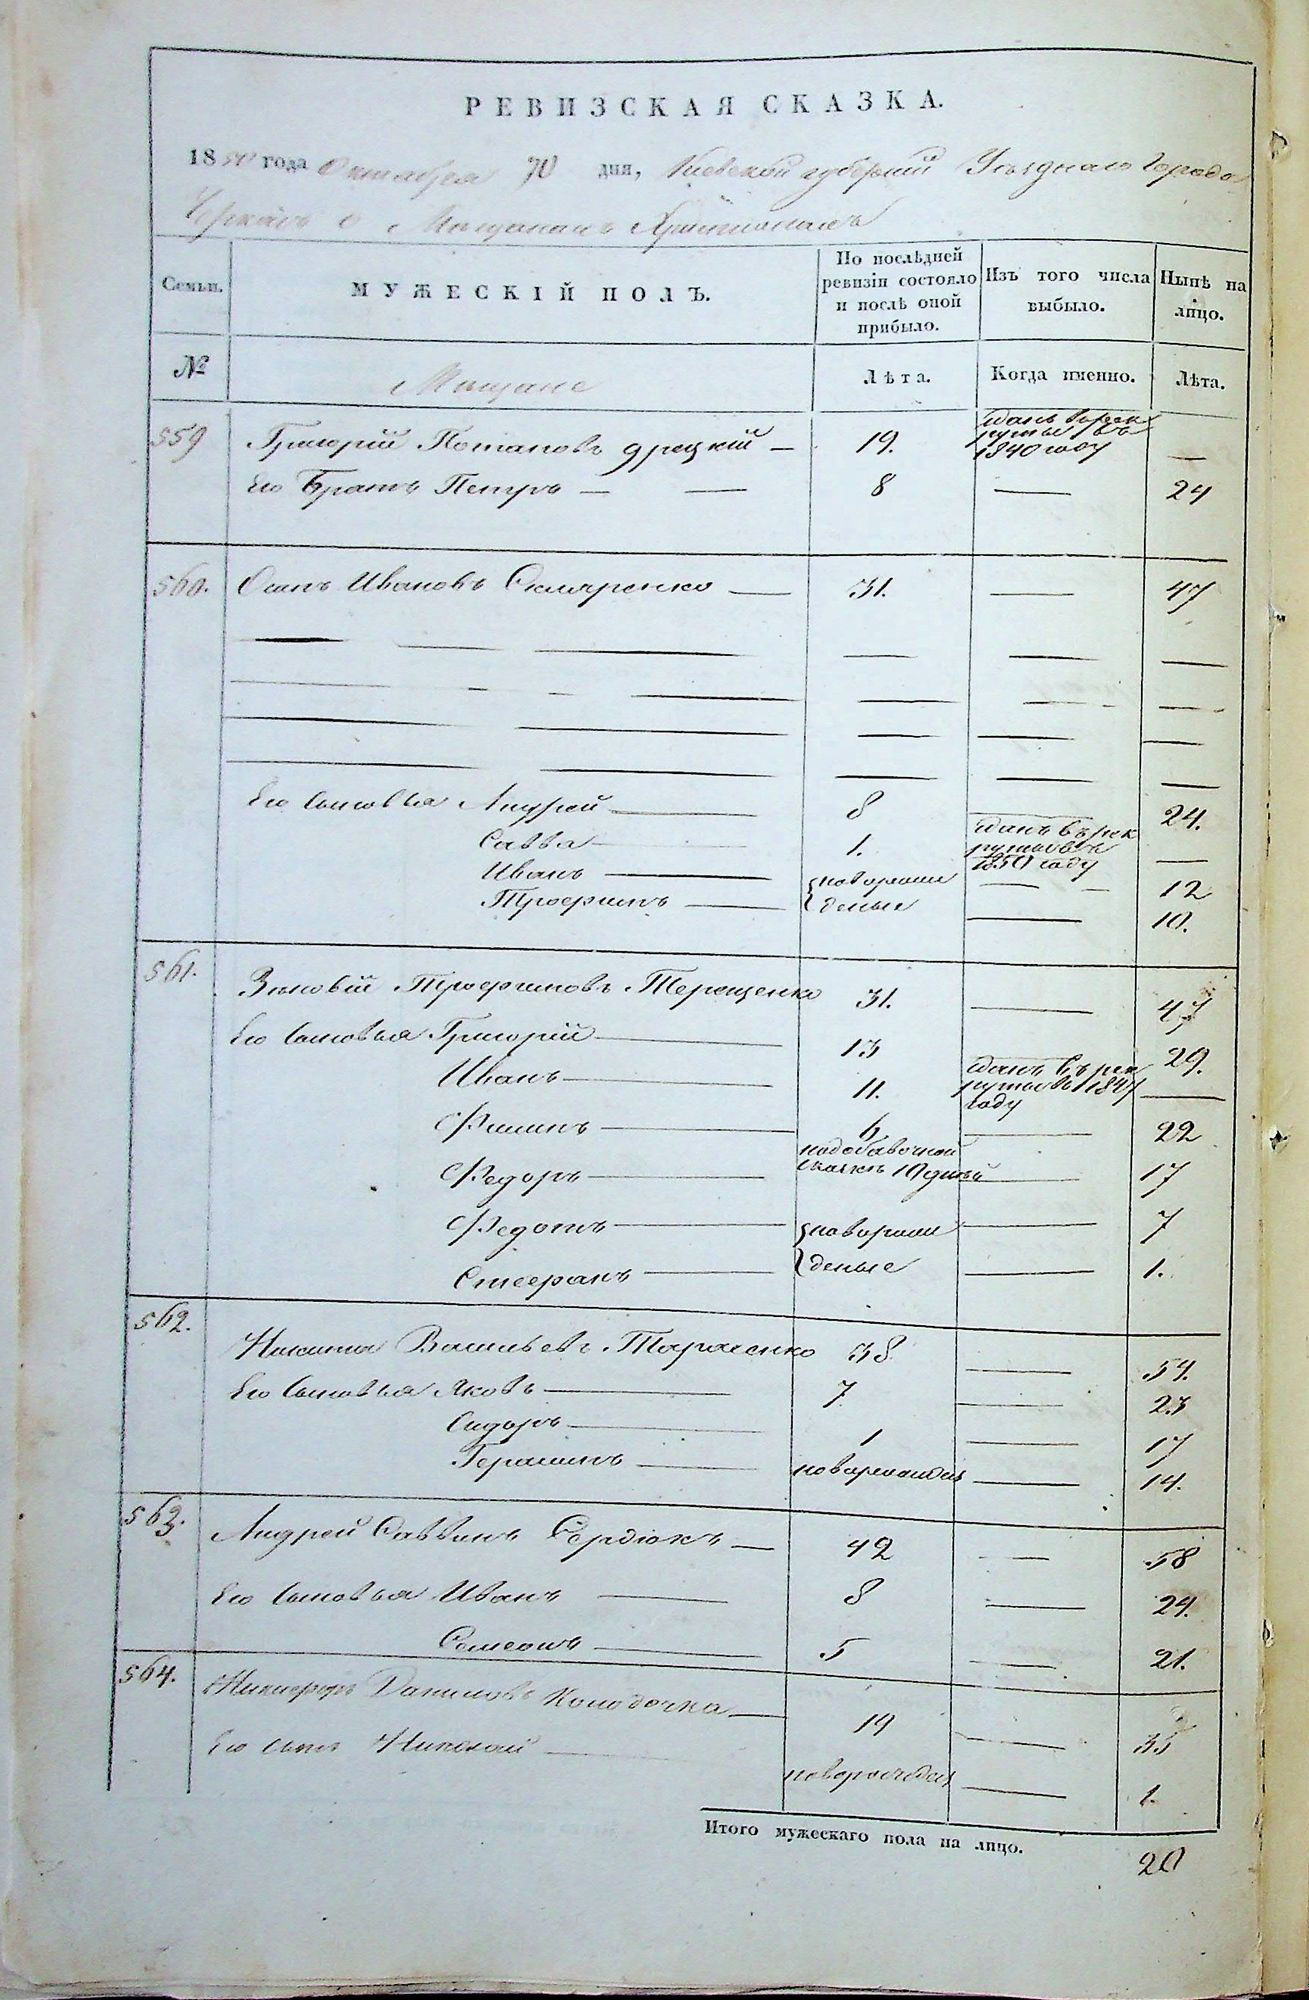 РЕВИЗСКАЯ СКАЗКА.
1850 года Октября 30 дня, Киевской губернии Уезднаго Города
Черкасъ о Мещанахъ Христіанахъ
Семьи.
МУЖЕСКІЙ ПОЛЪ.
По послѣдней ревизіи состояло и послѣ оной прибыло.
Изъ того числа выбыло.
Нынѣ на лицо.
№ Мещане Лѣта. Когда именно. Лѣта.
559 Григорій Потаповъ 19. зданъ въ рекруты въ 1840 году —
Его Братъ Петръ — — 8 — 24
560. Осипъ Ивановъ Скляренко — 31. — 47
Его сыновья Андрей — 8 — 24.
Савва — 1. зданъ въ рекруты въ 1850 году —
Иванъ — новорожденые — 12
Трофимъ — — 10.
561. Зѣновій Трофимовъ Терещенко 31. — 47
Его сыновья Григорій — 13 — 29.
Иванъ — 11. зданъ въ рекруты въ 1847 году —
Филипъ — 6 — 22
Федоръ — по добавочной сказкѣ 10 дней — 17
Федотъ — новорожденые — 7
Стефанъ — — 1.
562. Никита Васильевъ Тарасенко 38 — 54.
Его сыновья Яковъ — 7 — 23
Сидоръ — 1 — 17
Герасимъ — новорожденъ — 14.
563. Андрей Саввинъ Сердюкъ — 42 — 58
Его сыновья Иванъ — 8 — 24.
Семенъ — 5 — 21.
564. Никифоръ Даниловъ Колодочка — 19 — 35
Его сынъ Николай — новорожденъ — 1.
Итого мужескаго пола на лицо.
20